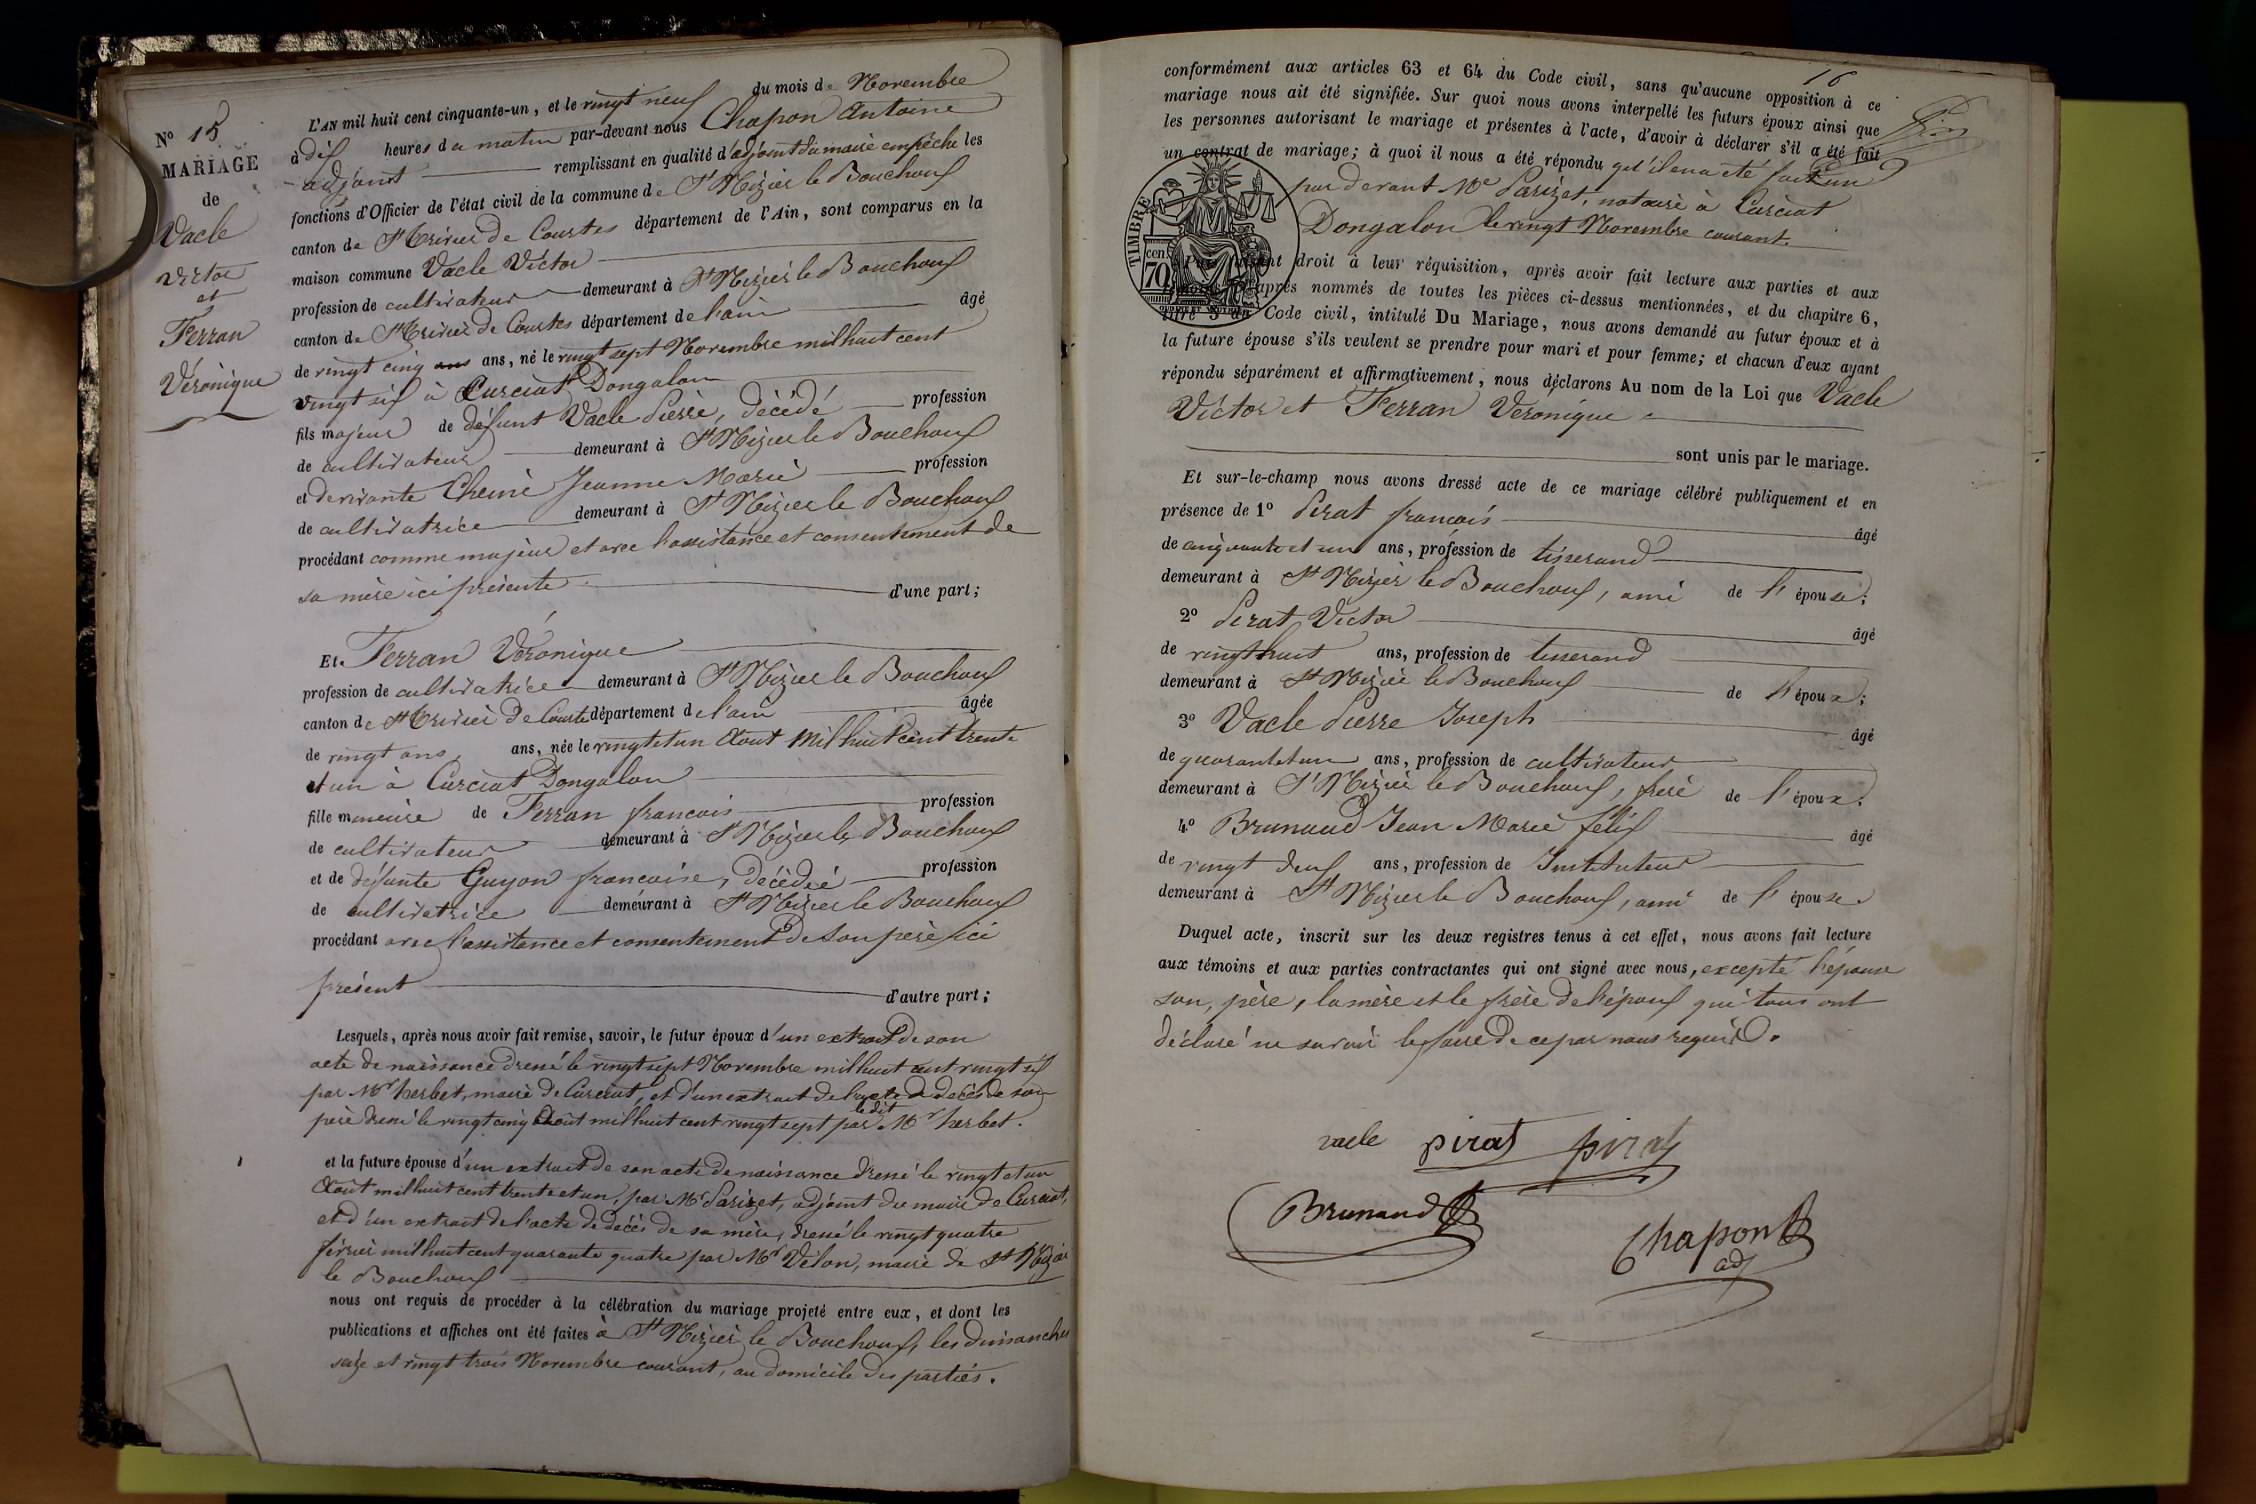 N° 15
MARIAGE
de
Vacle
Victor
et
Ferran
Véronique
L'AN mil huit cent cinquante-un, et le vingt neuf du mois de Novembre
à dix heures du matin par-devant nous Chapon Antoine
adjoint remplissant en qualité d'adjoint du maire empêché les
fonctions d'Officier de l'état civil de la commune de St Nizier le Bouchoux
canton de St Trivier de Courtes département de l'Ain, sont comparus en la
maison commune Vacle Victor
profession de cultivateur demeurant à St Nizier le Bouchoux
canton de St Trivier de Courtes département de l'ain âgé
de vingt cinq ans ans, né le vingt sept Novembre mil huit cent
vingt six à Curciat Dongalon
fils majeur de défunt Vacle Pierre, décédé profession
de cultivateur demeurant à St Nizier le Bouchoux
et de vivante Chêne Jeanne Marie profession
de cultivatrice demeurant à St Nizier le Bouchoux
procédant comme majeur et avec l'assistance et consentement de
sa mère ici présente d'une part;
Et Ferran Véronique
profession de cultivatrice demeurant à St Nizier le Bouchoux
canton de St Trivier de Courte département de l'ain âgée
de vingt ans, ans, née le vingt et un Aout mil huit cent trente
et un à Curciat Dongalon
fille mineure de Ferran francois profession
de cultivateur demeurant à St Nizier le Bouchoux
et de défunte Guyon francoise, décédée profession
de cultivatrice demeurant à St Nizier le Bouchoux
procédant avec l'assistance et consentement de son père ici
présent d'autre part;
Lesquels, après nous avoir fait remise, savoir, le futur époux d'un extrait de son
acte de naissance dressé le vingt sept Novembre mil huit cent vingt six
par Mr herbet, maire de Curciat, et d'un extrait de l'acte de décès de son
père dressé le vingt cinq Août mil huit cent vingt sept par ledit Mr herbet.
et la future épouse d'un extrait de son acte de naissance dressé le vingt et un
Août mil huit cent trente et un, par Mr Parizet, adjoint du maire de Curciat,
et d'un extrait de l'acte de décès de sa mère, dressé le vingt quatre
février mil huit cent quarante quatre par Mr Velon, maire de St Nizier
le Bouchoux
nous ont requis de procéder à la célébration du mariage projeté entre eux, et dont les
publications et affiches ont été faites à St Nizier le Bouchoux, les dimanches
seize et vingt trois Novembre courant, au domicile des parties.
16
conformément aux articles 63 et 64 du Code civil, sans qu'aucune opposition à ce
mariage nous ait été signifiée. Sur quoi nous avons interpellé les futurs époux ainsi que
les personnes autorisant le mariage et présentes à l'acte, d'avoir à déclarer s'il a été fait
un contrat de mariage; à quoi il nous a été répondu qu'il en a été fait un
par devant Me Parizet, notaire à Curciat
Dongalon le vingt Novembre courant.
TIMBRE
70 cen
droit à leur réquisition, après avoir fait lecture aux parties et aux
après nommés de toutes les pièces ci-dessus mentionnées, et du chapitre 6,
titre 5 du Code civil, intitulé Du Mariage, nous avons demandé au futur époux et à
la future épouse s'ils veulent se prendre pour mari et pour femme; et chacun d'eux ayant
répondu séparément et affirmativement, nous déclarons Au nom de la Loi que Vacle
Victor et Ferran Véronique
sont unis par le mariage.
Et sur-le-champ nous avons dressé acte de ce mariage célébré publiquement et en
présence de 1° Pirat francois âgé
de cinquante et un ans, profession de tisserand
demeurant à St Nizier le Bouchoux, ami de l'épouse;
2° Pirat Victor âgé
de vingt huit ans, profession de tisserand
demeurant à St Nizier le Bouchoux de l'époux;
3° Vacle Pierre Joseph âgé
de quarante un ans, profession de cultivateur
demeurant à St Nizier le Bouchoux, frère de l'époux.
4° Brunaud Jean Marie félix âgé
de vingt deux ans, profession de Instituteur
demeurant à St Nizier le Bouchoux, ami de l'épouse.
Duquel acte, inscrit sur les deux registres tenus à cet effet, nous avons fait lecture
aux témoins et aux parties contractantes qui ont signé avec nous, excepté l'épouse
son, père, la mère et le frère de l'époux qui tous ont
déclaré ne savoir le faire de ce par nous requis.
vacle pirat pirat
Brunaud
Chapon
adj